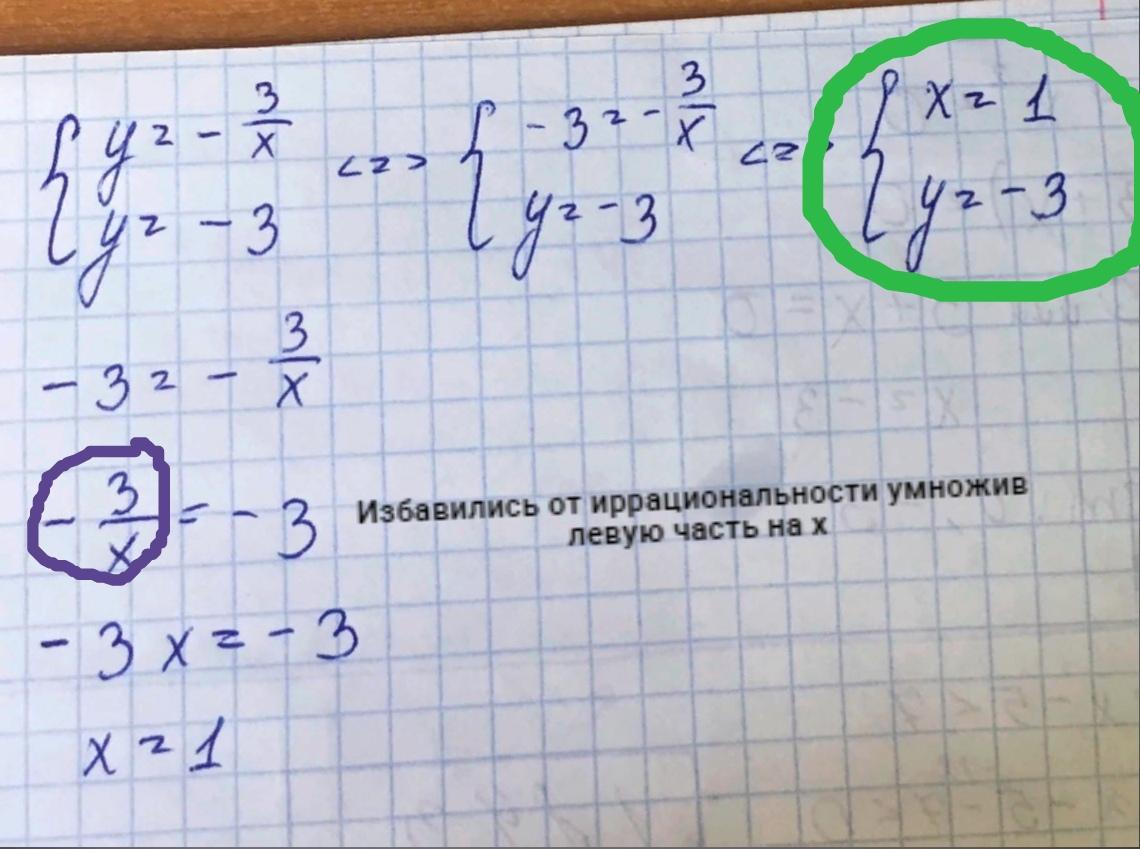 { y = - 3/x <=> { -3 = - 3/x <=> { x = 1
{ y = - 3 { y = - 3 { y = - 3
- 3 = - 3/x
- 3/x = - 3
Избавились от иррациональности умножив
левую часть на х
- 3 x = - 3
x = 1